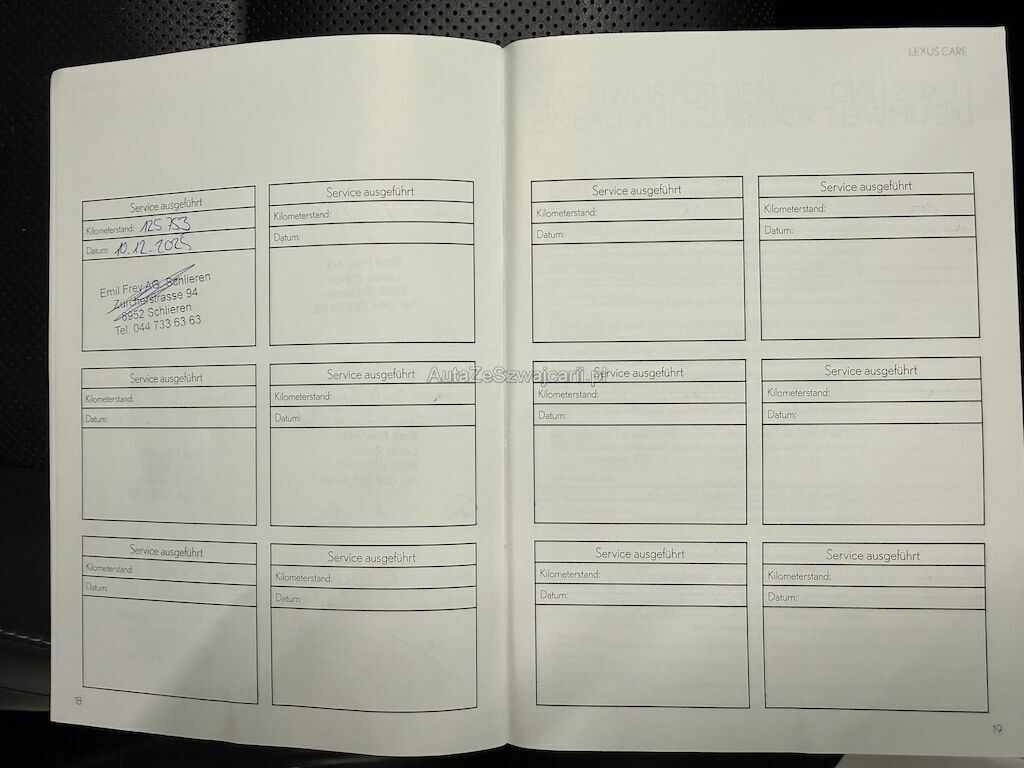 LEXUS CARE
Service ausgeführt
Kilometerstand: 125 753
Datum: 10.12.2025
Emil Frey AG, Schlieren
Zürcherstrasse 94
8952 Schlieren
Tel. 044 733 63 63
Service ausgeführt
Kilometerstand:
Datum:
Service ausgeführt
Kilometerstand:
Datum:
Service ausgeführt
Kilometerstand:
Datum:
Service ausgeführt
Kilometerstand:
Datum:
Service ausgeführt
Kilometerstand:
Datum:
AutaZeSzwajcarii.pl
Service ausgeführt
Kilometerstand:
Datum:
Service ausgeführt
Kilometerstand:
Datum:
Service ausgeführt
Kilometerstand:
Datum:
Service ausgeführt
Kilometerstand:
Datum:
Service ausgeführt
Kilometerstand:
Datum:
Service ausgeführt
Kilometerstand:
Datum:
18
19